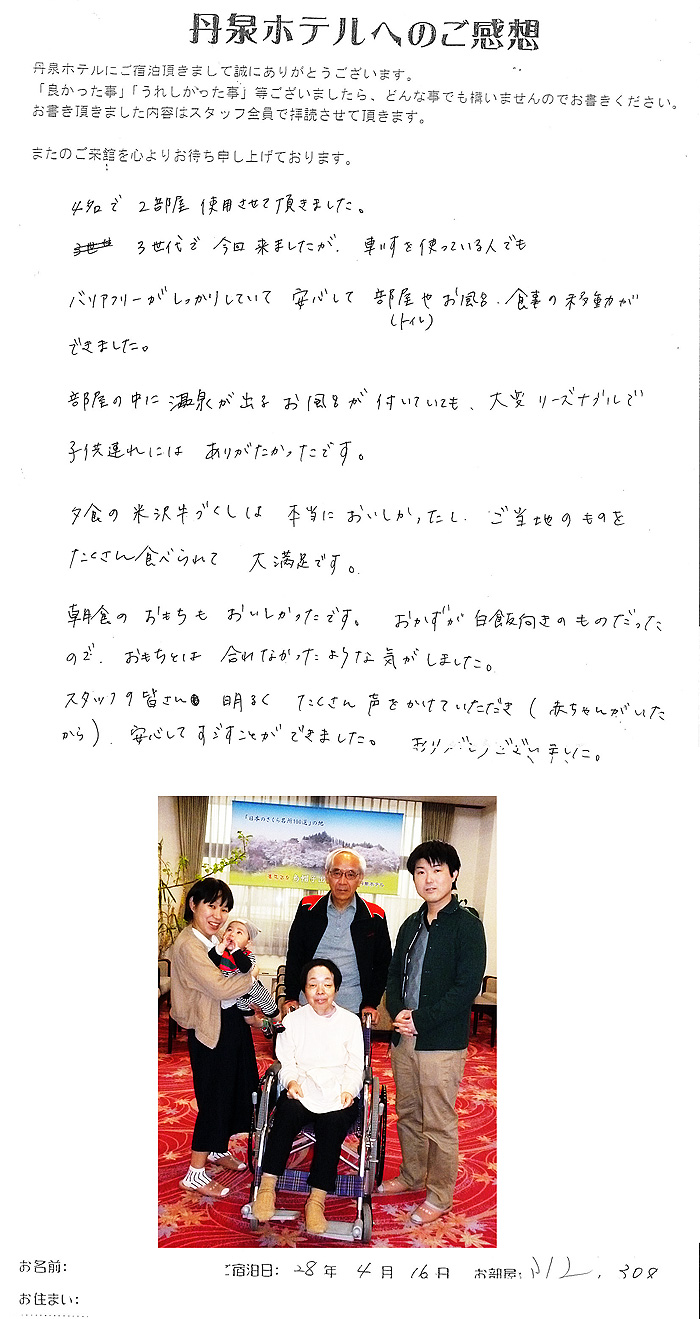 丹泉ホテルへのご感想
丹泉ホテルにご宿泊頂きまして誠にありがとうございます。
「良かった事」「うれしかった事」等ございましたら、どんな事でも構いませんのでお書きください。
お書き頂きました内容はスタッフ全員で拝読させて頂きます。
またのご来館を心よりお待ち申し上げております。
4名で 2部屋 使用させて頂きました。
3世代で 今回来ましたが、車いすを使っている人でも
バリアフリーがしっかりしていて 安心して 部屋やお風呂、食事の移動が
(トイレ)
できました。
部屋の中に 温泉が出る お風呂が 付いていても、大変 リーズナブルで
子供連れには ありがたかったです。
夕食の 米沢牛づくしは 本当に おいしかったし、ご当地のものを
たくさん食べられて 大満足です。
朝食の おもちも おいしかったです。 おかずが 白飯向きのものだった
ので、おもちとは 合わなかったような気がしました。
スタッフの皆さんも 明るく たくさん 声をかけていただき(赤ちゃんがいた
から)、安心してすごすことができました。 ありがとうございました。
「日本のさくら名所100選」の地
お名前:
ご宿泊日: 28年 4月 16日 お部屋: 312, 308
お住まい: